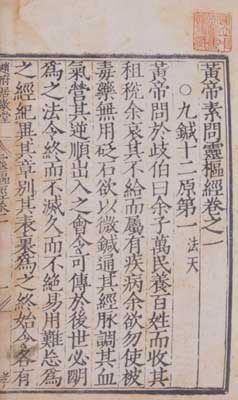 黃帝素問靈樞經卷之一
○九鍼十二原第一 法天
黃帝問於歧伯曰余子萬民養百姓而收其
租稅余哀其不給而屬有疾病余欲勿使被
毒藥無用砭石欲以微鍼通其經脉調其血
氣營其逆順出入之會令可傳於後世必明
爲之法令終而不滅久而不絕易用難忘爲
之經紀異其章別其表裏爲之終始令各有
趙府居敬堂